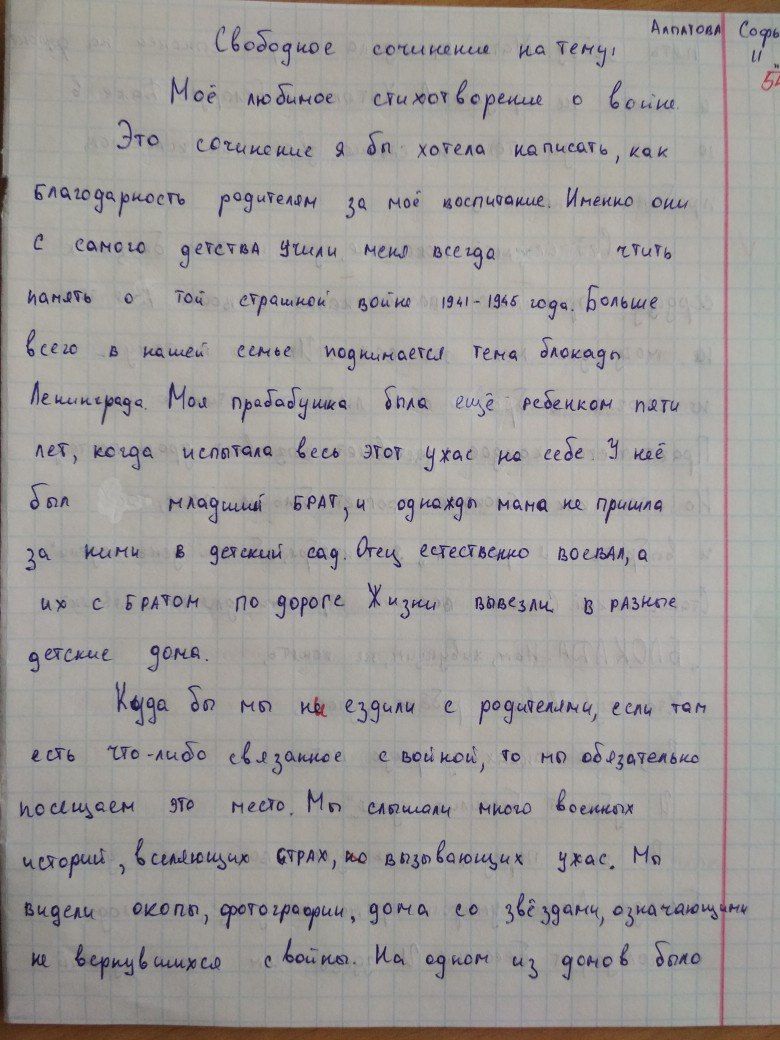 Алпатова Софь
11 "
54
Свободное сочинение на тему:
Моё любимое стихотворение о войне.
Это сочинение я бы хотела написать, как
благодарность родителям за моё воспитание. Именно они
с самого детства учили меня всегда чтить
память о той страшной войне 1941-1945 года. Больше
всего в нашей семье поднимается тема блокады
Ленинграда. Моя прабабушка была ещё ребенком пяти
лет, когда испытала весь этот ужас на себе. У неё
был младший брат, и однажды мама не пришла
за ними в детский сад. Отец естественно воевал, а
их с братом по дороге Жизни вывезли в разные
детские дома.
Куда бы мы ни ездили с родителями, если там
есть что-либо связанное с войной, то мы обязательно
посещаем это место. Мы слышали много военных
историй, вселяющих страх, вызывающих ужас. Мы
видели окопы, фотографии, дома со звёздами, означающими
не вернувшихся с войны. На одном из домов было